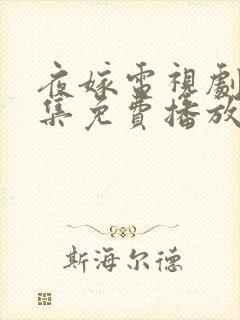 夜嫁電視劇
集免費播放
斯海尔德